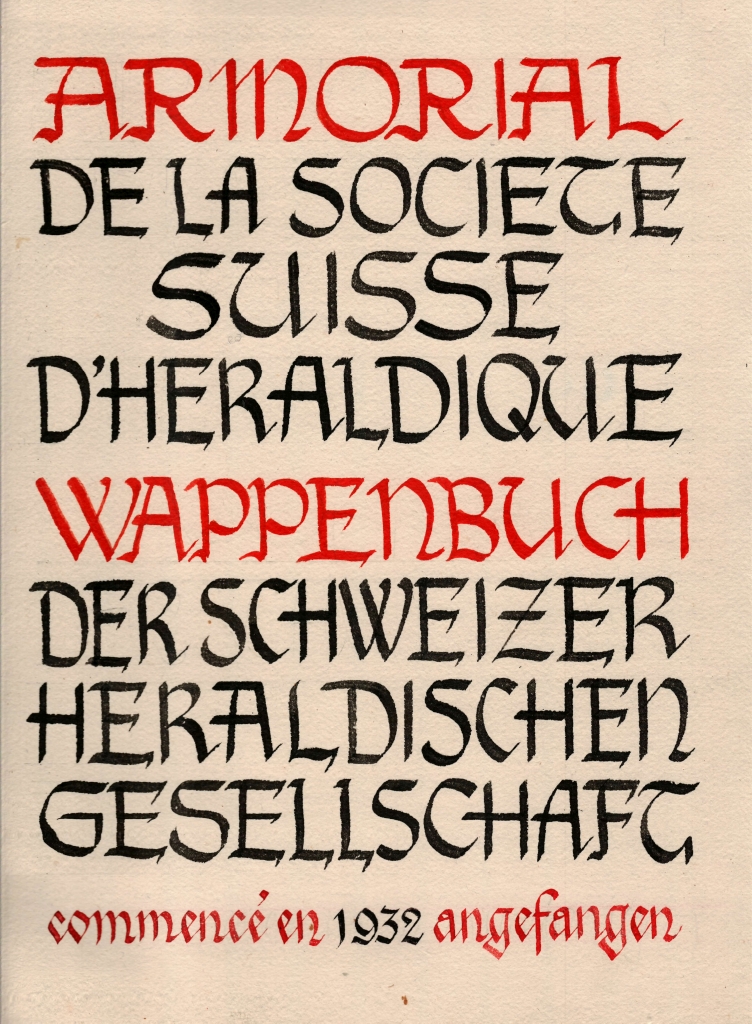 ARMORIAL
DE LA SOCIETE
SUISSE
D'HERALDIQUE
WAPPENBUCH
DER SCHWEIZER
HERALDISCHEN
GESELLSCHAFT
commencé en 1932 angefangen